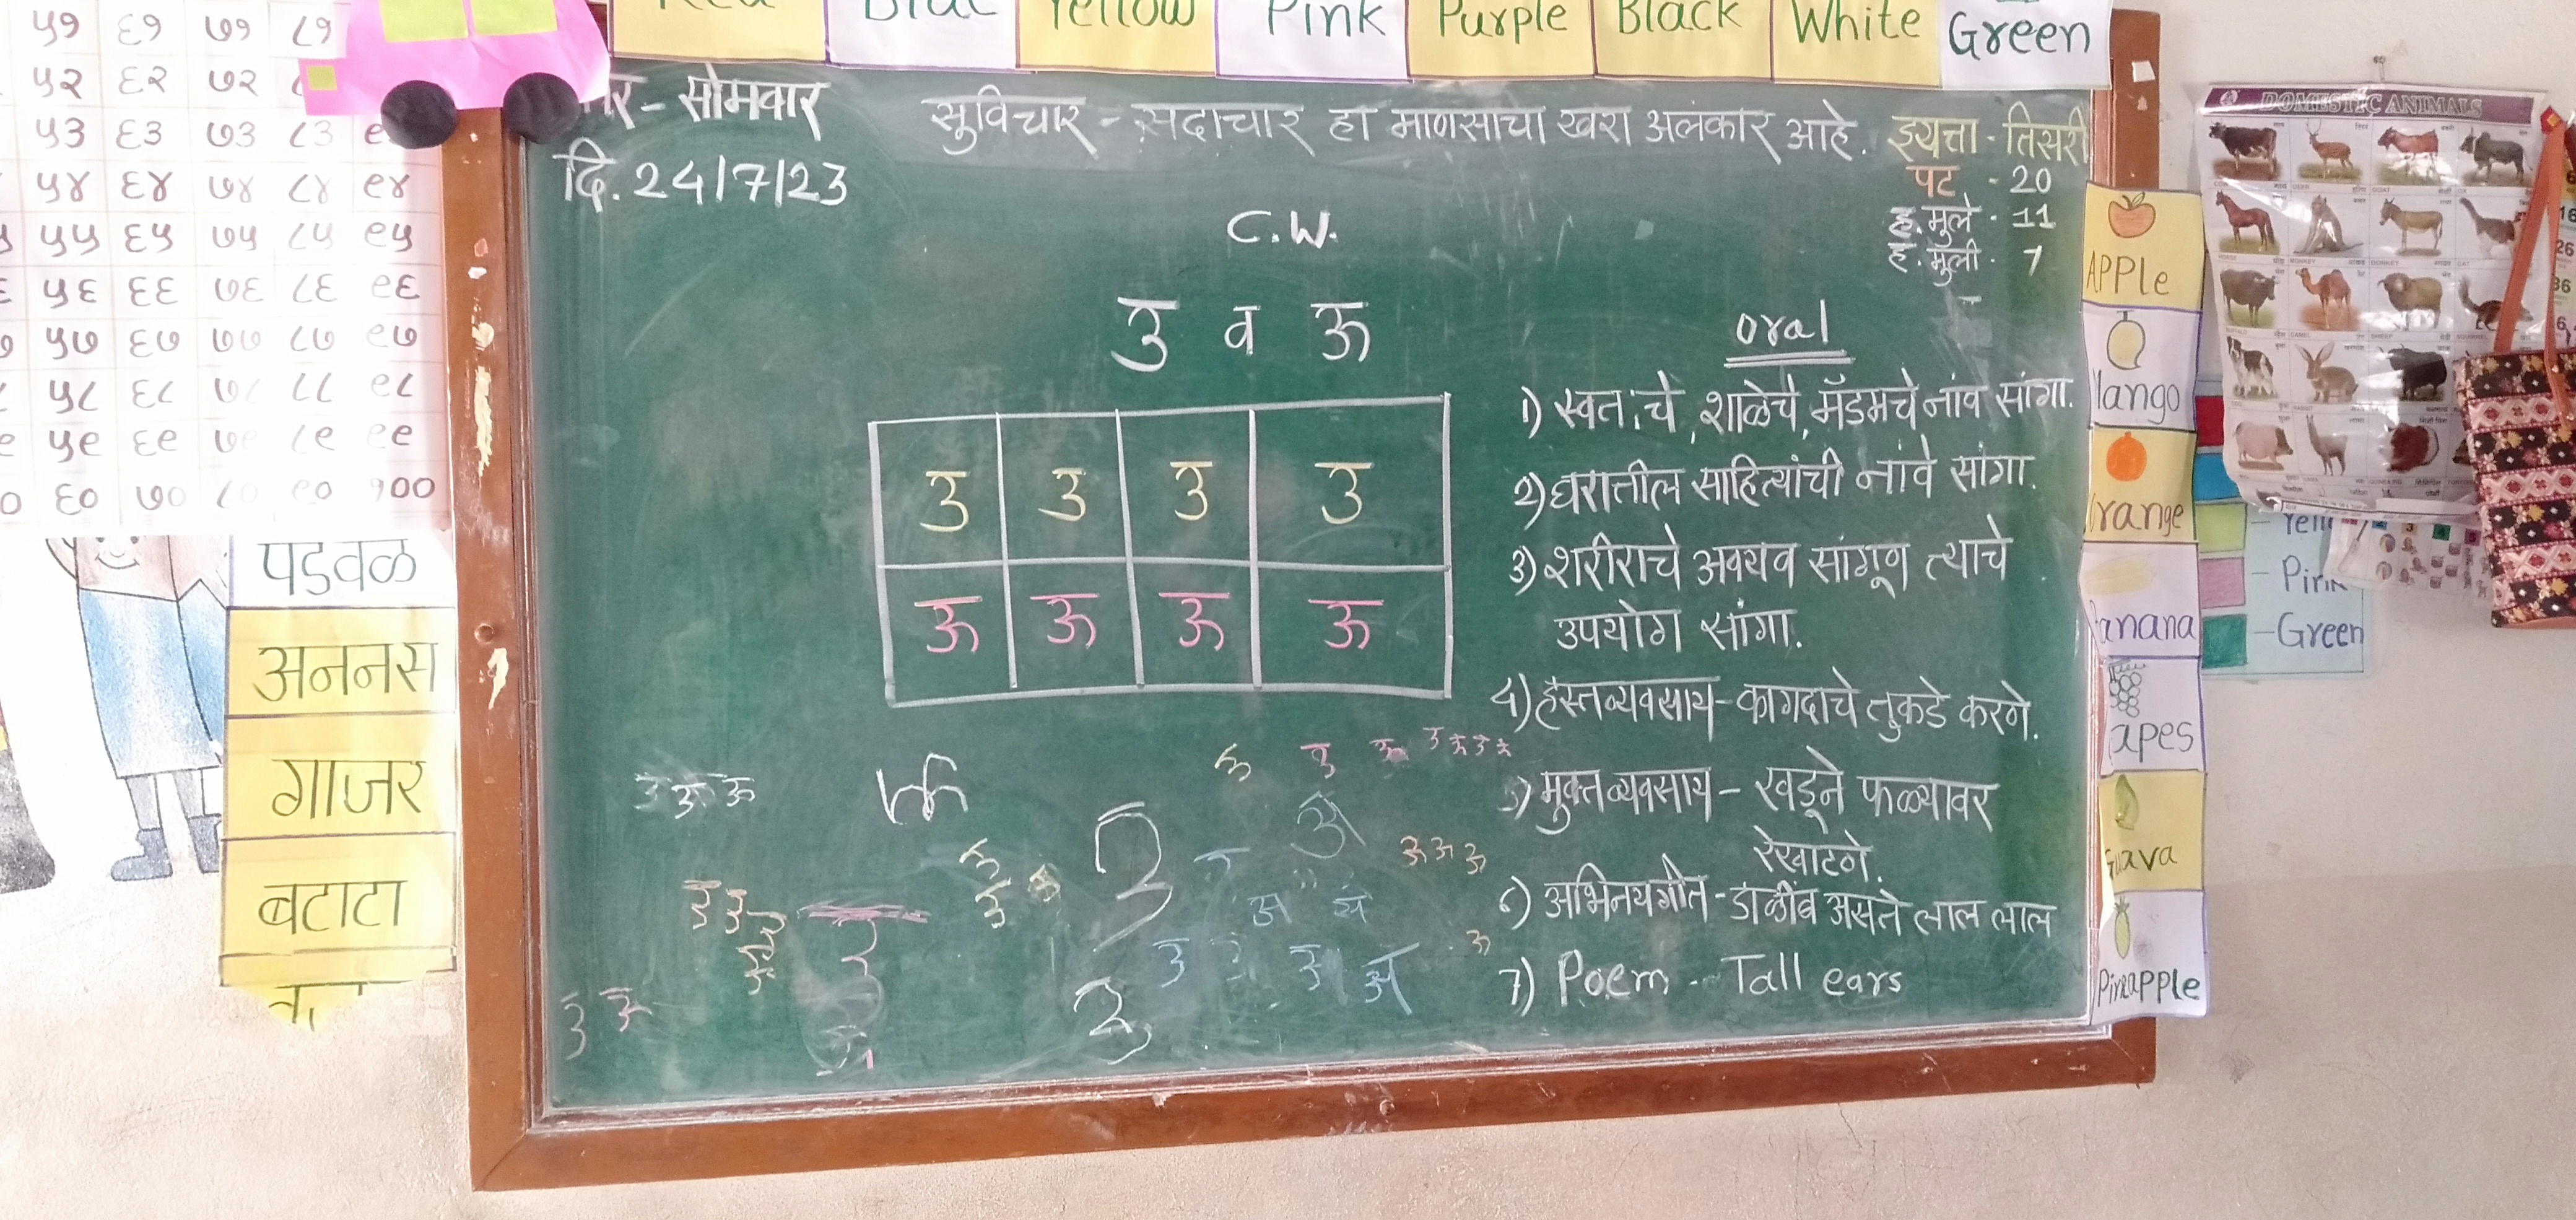 Yellow Pink Purple Black White Green
५१ ६१ ७१ ८१
५२ ६२ ७२
५३ ६३ ७३ ८३
५४ ६४ ७४ ८४ ९४
५५ ६५ ७५ ८५ ९५
५६ ६६ ७६ ८६ ९६
५७ ६७ ७७ ८७ ९७
५८ ६८ ७८ ८८ ९८
५९ ६९ ७९ ८९ ९९
६० ७० ८० ९० १००
पडवळ
अननस
गाजर
बटाटा
वार - सोमवार
दि. 24/7/23
सुविचार - सदाचार हा माणसाचा खरा अलंकार आहे.
इयत्ता - तिसरी
पट - 20
ह. मुले - 11
ह. मुली - 7
C.W.
उ व ऊ
उ उ उ उ
ऊ ऊ ऊ ऊ
oral
1) स्वतःचे, शाळेचे, मॅडमचे नांव सांगा.
2) घरातील साहित्यांची नांवे सांगा.
3) शरीराचे अवयव सांगूण त्याचे
उपयोग सांगा.
4) हस्तव्यवसाय - कागदाचे तुकडे करणे.
5) मुक्तव्यवसाय - खडूने फळ्यावर
रेखाटणे.
6) अभिनयगीत - डाळींब असते लाल लाल
7) Poem - Tall ears
उ ऊ ऊ
APPle
Mango
Orange
Banana
Grapes
Guava
Pineapple
DOMESTIC ANIMALS
- Pink
- Green